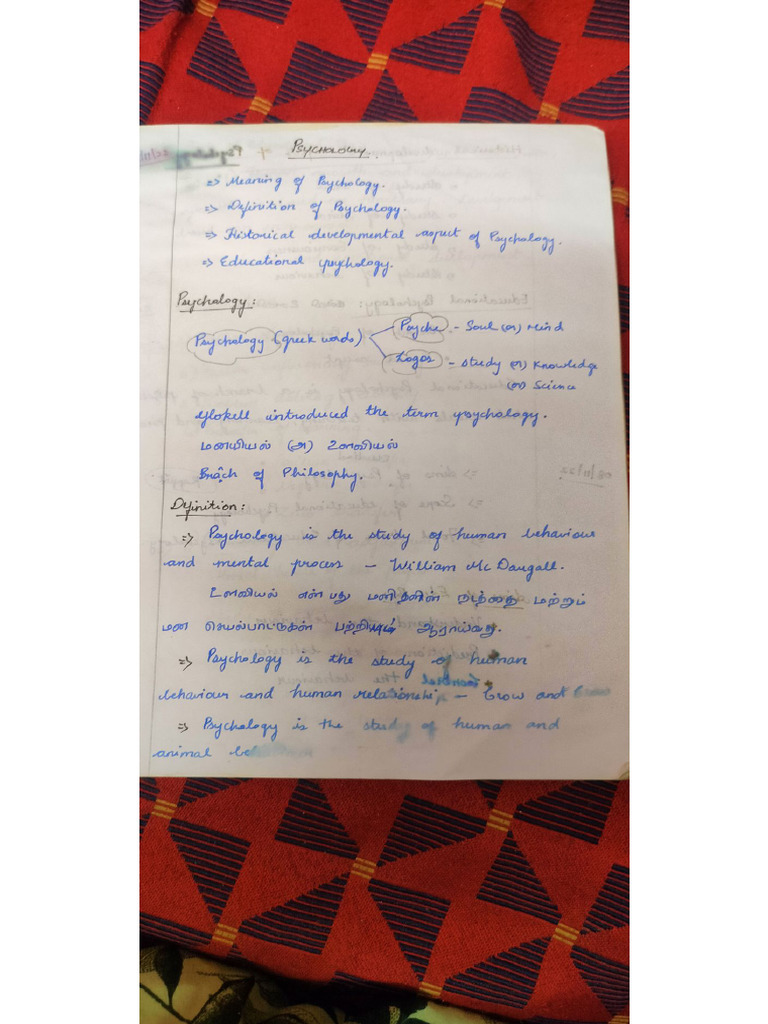 PSYCHOLOGY.
⇒ Meaning of Psychology.
⇒ Definition of Psychology.
⇒ Historical developmental aspect of Psychology.
⇒ Educational psychology.
Psychology:
Psychology (greek words)
Psyche - Soul (or) Mind
Logos - Study (or) Knowledge
(or) Science
introduced the term psychology.
மனவியல் (அ) உளவியல்
Brach of Philosophy.
Definition:
⇒ Psychology is the study of human behaviour
and mental process - William Mc Daugall.
உளவியல் என்பது மனிதனின் நடத்தை மற்றும்
மன செயல்பாட்டுகள் பற்றியும் ஆராய்வது.
⇒ Psychology is the study of human
behaviour and human relationshi - Crow and
⇒ Psychology is the study of human and
animal